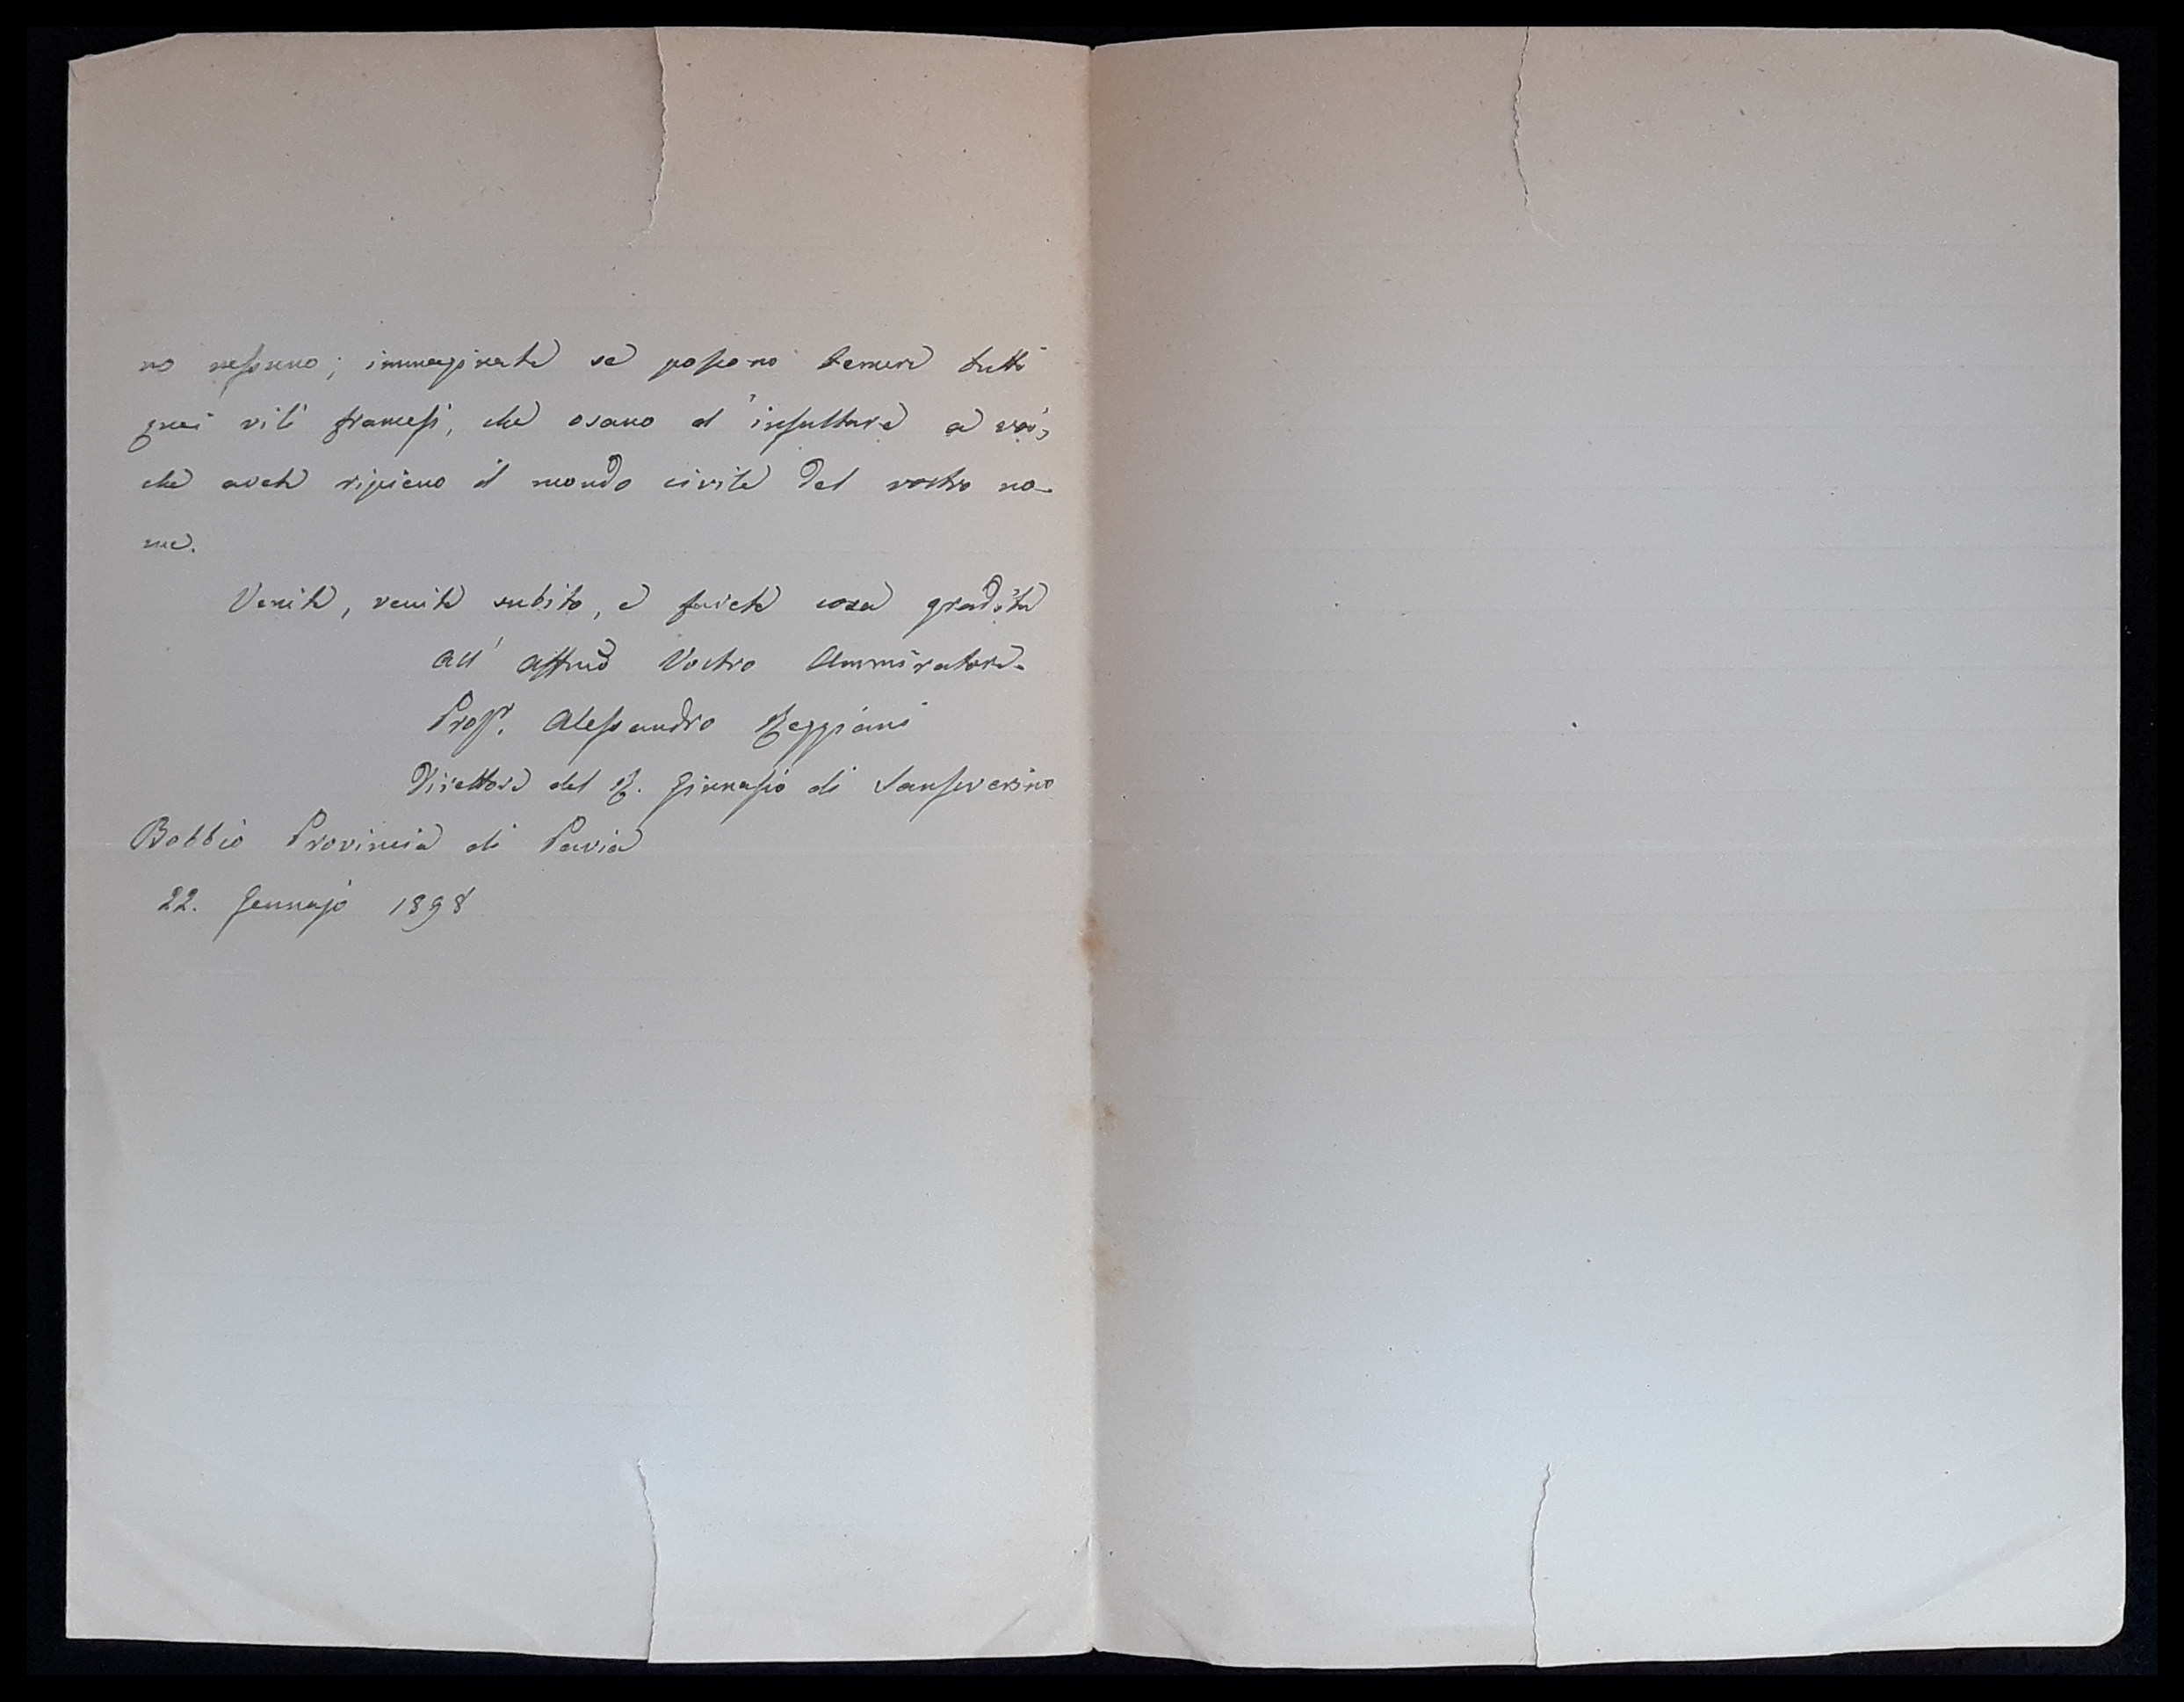 no nessuno; immaginate se possono temere tutti
quei vili francesi, che osano d'insultare a voi,
che avete ripieno il mondo civile del vostro no-
me.
Venite, venite subito, e farete cosa gradita
all' affmo Vostro Ammiratore.
Prof. Alessandro Reggiani
Direttore del R. Ginnasio di Sanseverino
Bobbio Provincia di Pavia
22. Gennajo 1898